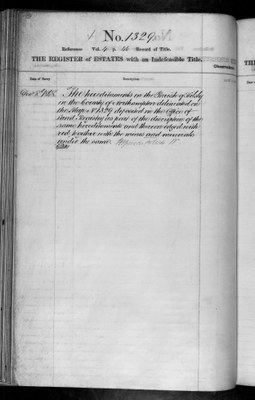 No. 1329
Reference Vol. p. Record of Title.
THE REGISTER of ESTATES with an Indefeasible Title.
Date of Entry. Description
The hereditaments in the Parish of
in the County of Northampton delineated on
the Map No 1329 deposited in the Office of
Land Registry as part of the description of the
same hereditaments and thereon edged with
red, together with the mines and minerals
under the same.